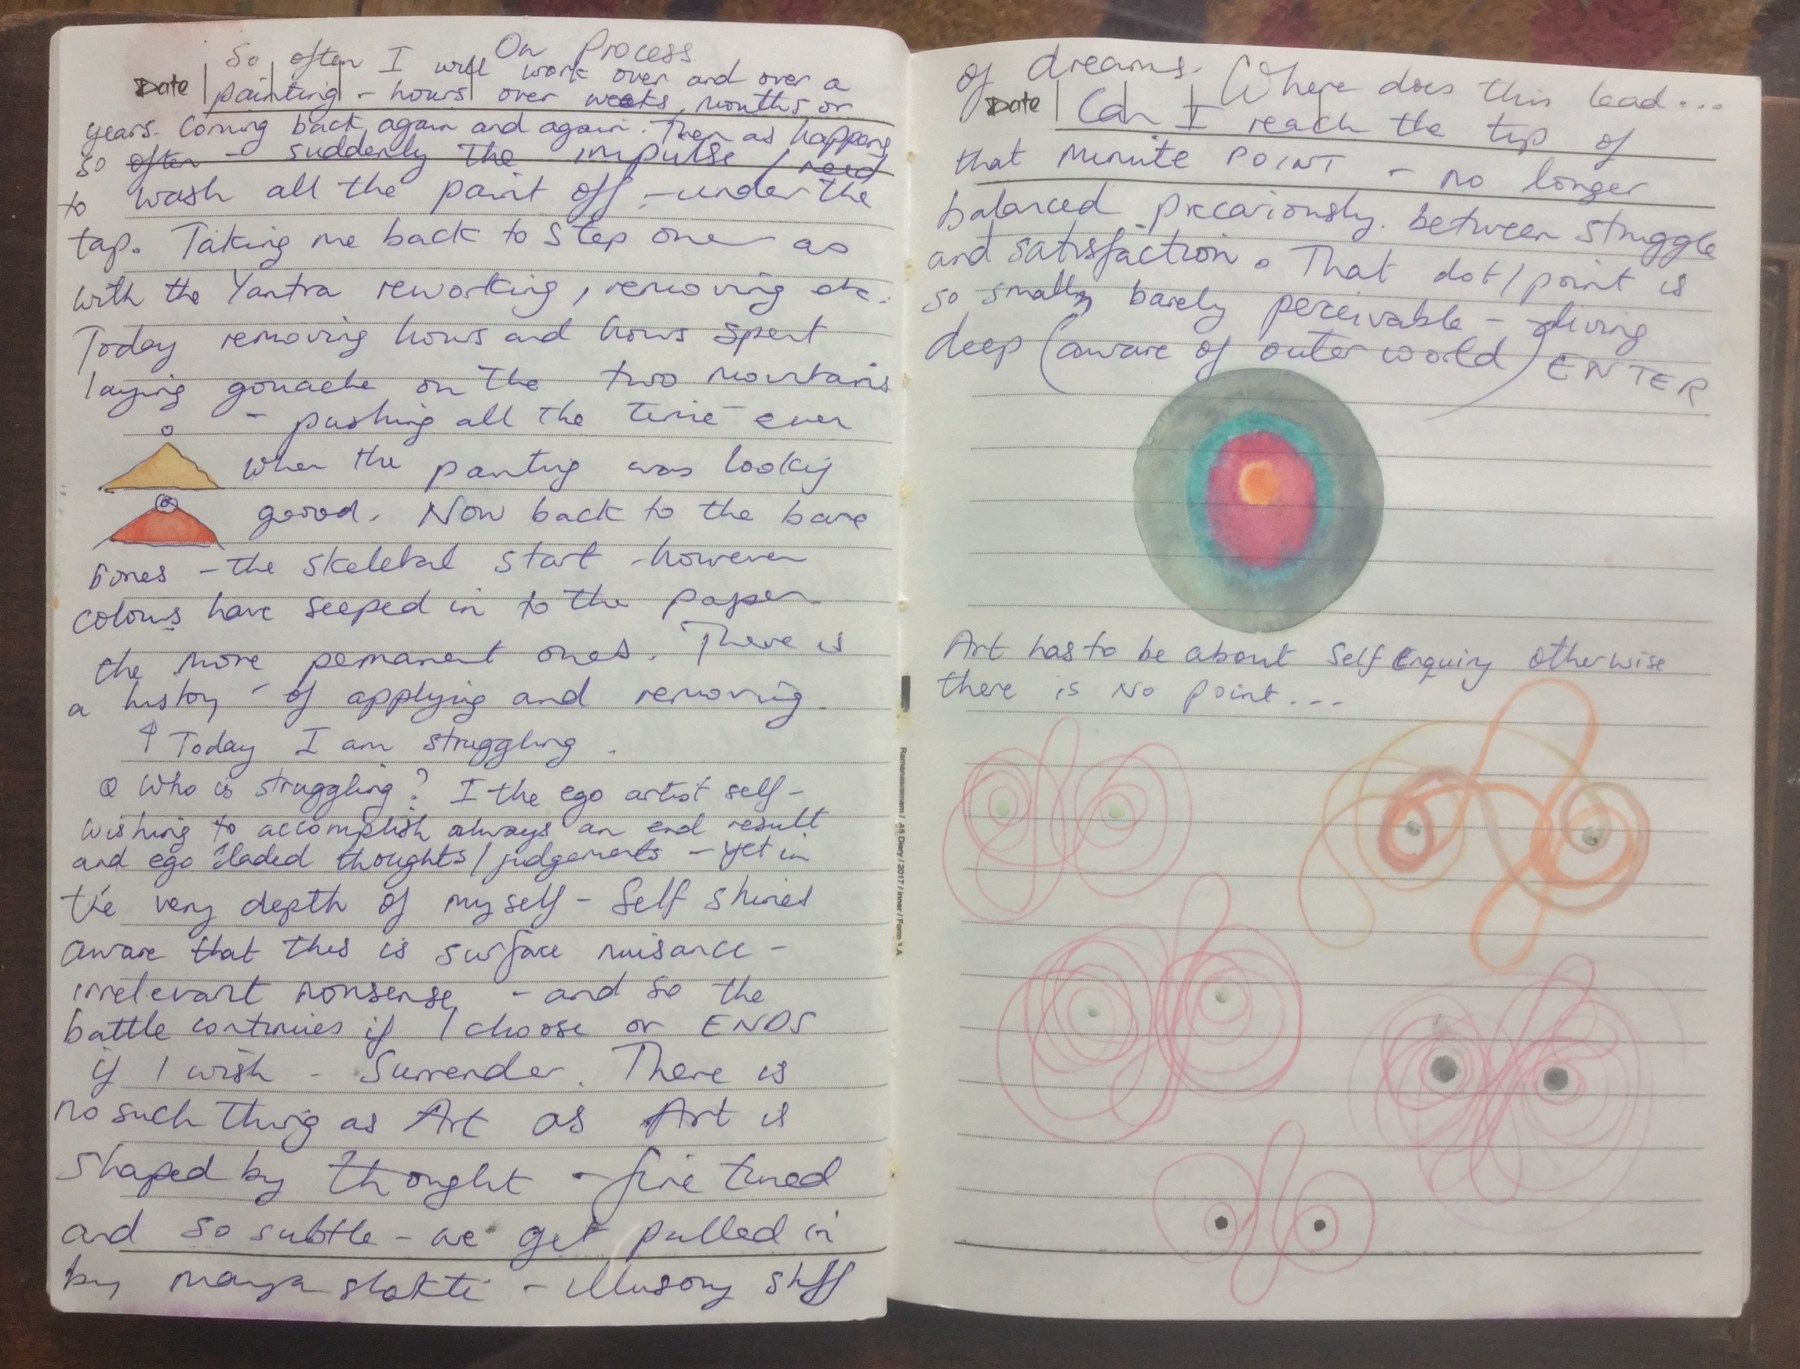 On Process
So often I will work over and over a
Date painting - hours over weeks, months or
years. Coming back again and again. Then as happens
so often - suddenly the impulse / need
to wash all the paint off - under the
tap. Taking me back to step one as
with the Yantra reworking, removing etc.
Today removing hours and hours spent
laying gouache on the two mountains
- pushing all the time ever
when the painting was lookig
good. Now back to the bare
bones - the skeletal start - however
colours have seeped in to the paper
the more permanent ones. There is
a history of applying and removing.
Today I am struggling.
Q Who is struggling? I the ego artist self -
wishing to accomplish always an end result
and ego laded thoughts/judgements - yet in
the very depth of myself - Self shines
aware that this is surface nuisance -
irrelevant nonsense - and so the
battle continues if I choose or ENDS
if I wish - Surrender. There is
no such thing as Art as Art is
shaped by thought - fine tuned
and so subtle - we get pulled in
by maya shakti - illusory stuff
of dreams. Where does this lead...
Date Can I reach the tip of
that minute POINT - no longer
balanced precariously between struggle
and satisfaction. That dot/point is
so small, barely perceivable - diving
deep (aware of outer world) ENTER
Art has to be about Self Enquiry otherwise
there is NO point...
Ramanasramam / A5 Diary / 2017 / inner / Form Y.A